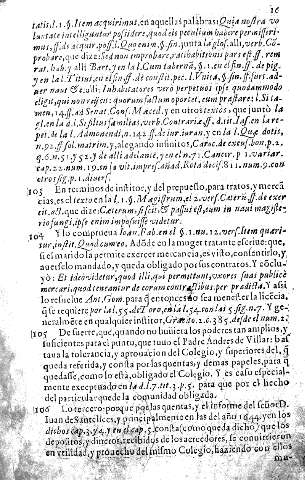 16
tatis l. 1. §. Item acquirimus, en aquellas palabras Quia nostra vo
luntate intelliguntur possidere, quod eis peculium habere permisseri-
mus, ff. de acquir. poss. l. Quoniam, §. fin. junta la glos. all. verb. Com-
probare, que dize: Sed non improbare, rati habitionis pars est ff. rem
rat. hab. y alli Bart. y en la l. Cum tabernã, §. 1. en el fin. ff. de pig.
y en la l. Titius, en el fin ff. de constit. pec. l. Unica, §. fin. ff. furt. ad-
uer naut. &c. alli: Inhabitatores verò perpetuos ips quodammodo
elegit, qui non reijcit: quorum factum oportet, eum præstare, l. Si ta-
men, 14. ff. ad Senat. Conf. Maced. y en otros textos que juntò la
gl. en la d. l. Si filius familias, verb. Contrariæ ff. d. tit. Jas. en la re-
pet. de la l. Admonendi, n. 142. ff. de jur. jurand. y en la l. Quæ dotis,
n. 92. ff. sol. matrim. y, alegando infinitos, Caroc. de excus. bon. p. 2.
q. 6. n. 51. y 52. y de alli adelante, y en el n. 71. Cancer p. 1. variar.
cap. 22. num. 19. in la vit. impres. añad. Rota decis. 811. num. 9. con
otros sig. p. 1. diuers.
103 En terminos de institor, y del prepuesto, para tratos, y merca-
cias, es el texto en la l. 1. §. Magistrum, el 2. vers. Cæteris. ff. de exer
cit. act. que dize: Cæterùm, si scit, & passus est, eum in naue magiste-
rio fungi, ipse enim imposuisse videtur.
104 Y lo comprueua Ioan. Fab. en el §. 1. nu. 12. vers. Item quæri-
tur instit. Quod cum eo. Adõde en la muger tratante escriue: que,
si es marido la permite exercer mercancias, es visto, consentirlo, y
auerselo mandado, y queda obligado por sus contratos. Y cõclu-
yò: Et idem videtur, quod illi, qui permittunt, vxores suas publicè
mercari, quod teneantur de eorum contractibus per prædicta. Y assi
lo resuelue Ant. Gom. para q entonces no sea menester la licẽcia,
q se requiere por la l. 55. de Toro, en la l. 54. con las 5. sig. n. 7. Y ge-
neralmẽte en qualquier institor, Grat. to. 2. c. 385. desde el num. 2.
105 De suerte que, quando no huuiera los poderes tan amplios, y
suficientes para el punto, que tuuo el Padre Andres de Villar: bas-
taua la tolerancia, y aprouacion del Colegio, y superiores del, q
queda referida, y consta por las quentas, y demas papeles, para q
quedasse, como lo està, obligado el Colegio. Y es caso especial-
mente exceptuado en la d. l. 7. tit. 3. p. 5. para que por el hecho
del particular quede la comunidad obligada.
106 Lo tercero, porque por las quentas, y el informe del señor D.
Iuan de Santelices, y principalmente en las del año de 1644. y en los
dichos cap. 3. y 4. y en el cap. 5. consta (como queda dicho) que los
depositos, y dineros, recibidos de los acreedores, se conuirtieron
en vtilidad, y prouecho del mismo Colegio, haziendo con ellos
mu-